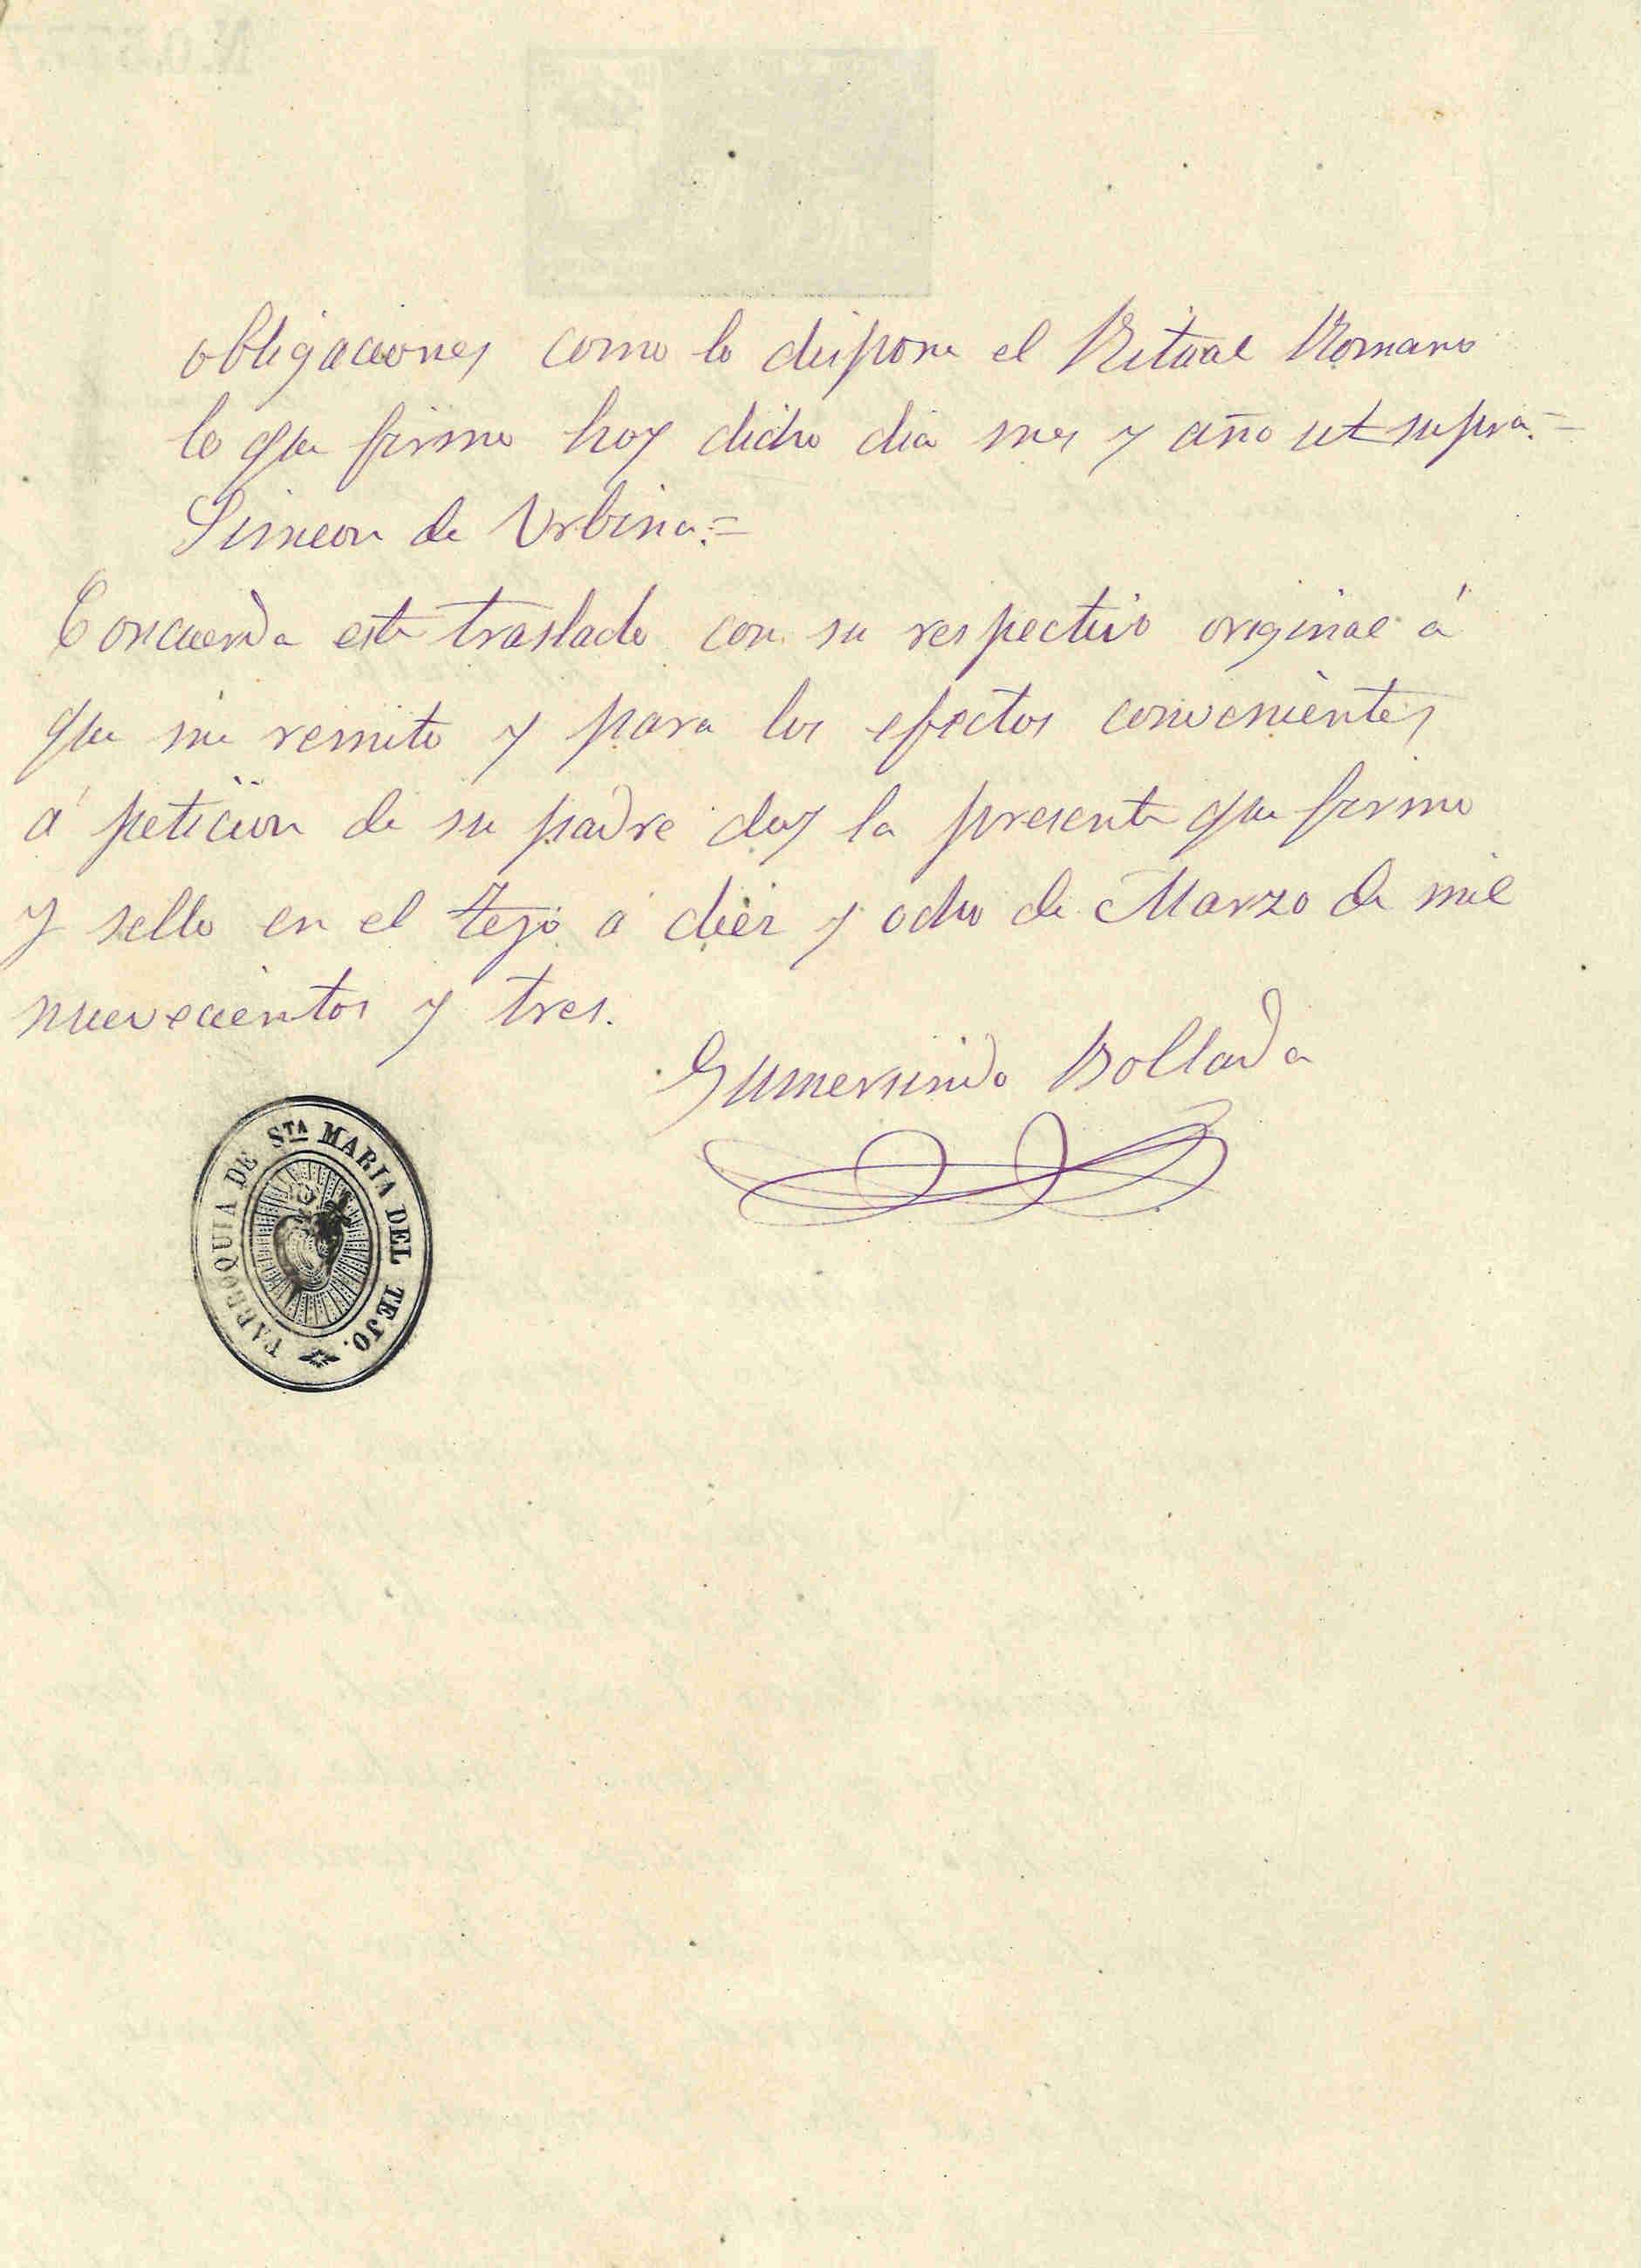 obligaciones como lo dispone el Ritual Romano
lo que firmo hoy dicho dia mes y año ut supra.=
Simeon de Urbina.=
Concuerda este traslado con su respectivo original á
que me remito y para los efectos convenientes
á peticion de su padre doy la presente que firmo
y sello en el Tejo á diez y ocho de Marzo de mil
nuevecientos y tres.
Gumersindo Bollada
PARROQUIA DE STA MARIA DEL TEJO.